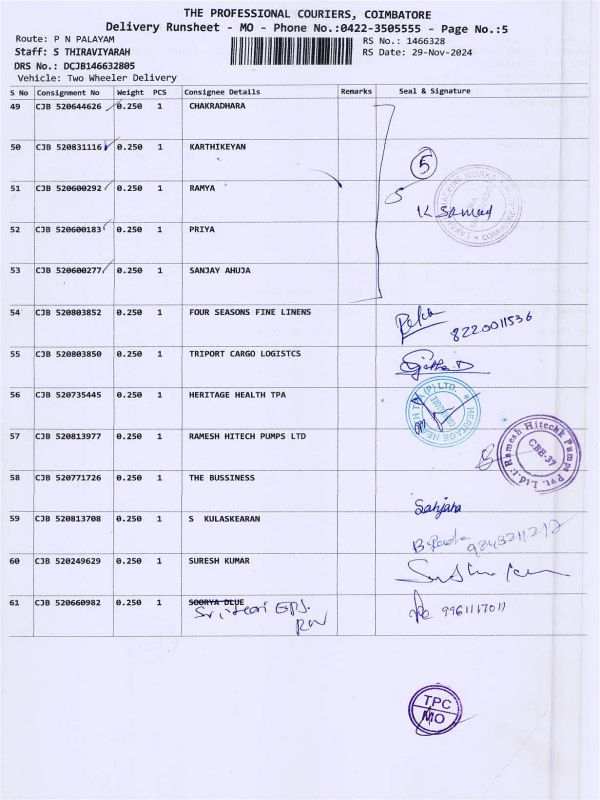 THE PROFESSIONAL COURIERS, COIMBATORE
Delivery Runsheet - MO - Phone No.:0422-3505555 - Page No.:5
Route: P N PALAYAM
RS No.: 1466328
Staff: S THIRAVIYARAH
RS Date: 29-Nov-2024
DRS No.: DCJB146632805
Vehicle: Two Wheeler Delivery
S No Consignment No Weight PCS Consignee Details Remarks Seal & Signature
49 CJB 520644626 0.250 1 CHAKRADHARA
50 CJB 520831116 0.250 1 KARTHIKEYAN
5
51 CJB 520600292 0.250 1 RAMYA
K Samud
52 CJB 520600183 0.250 1 PRIYA
53 CJB 520600277 0.250 1 SANJAY AHUJA
54 CJB 520803852 0.250 1 FOUR SEASONS FINE LINENS
8220011536
55 CJB 520803850 0.250 1 TRIPORT CARGO LOGISTCS
56 CJB 520735445 0.250 1 HERITAGE HEALTH TPA
HERITAGE HEALTH TPA (P) LTD.
57 CJB 520813977 0.250 1 RAMESH HITECH PUMPS LTD
Ramesh Hitechk Pumps Pvt. Ltd.
CBE-37
58 CJB 520771726 0.250 1 THE BUSSINESS
59 CJB 520813708 0.250 1 S KULASKEARAN
9243211212
60 CJB 520249629 0.250 1 SURESH KUMAR
61 CJB 520660982 0.250 1 SOORYA DLUE
9961117011
TPC
MO